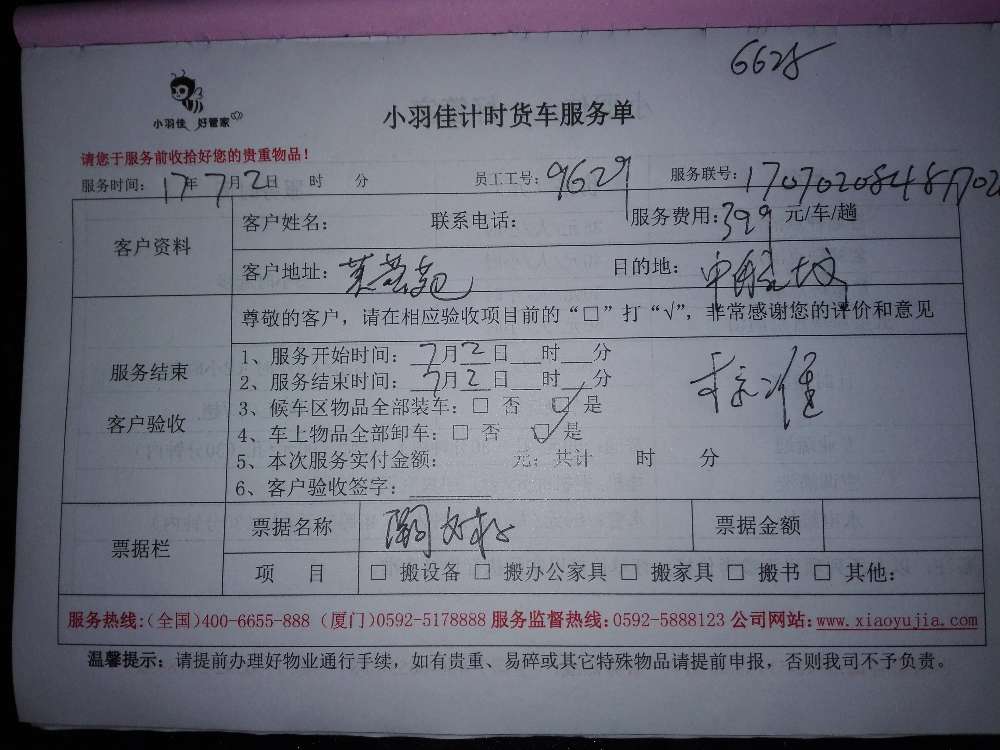 6628
小羽佳 好管家
小羽佳计时货车服务单
请您于服务前收拾好您的贵重物品！
服务时间：17年7月2日 时 分 员工工号：9629 服务联号：
客户资料
客户姓名： 联系电话： 服务费用：399 元/车/趟
客户地址： 目的地：
服务结束
客户验收
尊敬的客户，请在相应验收项目前的“□”打“√”，非常感谢您的评价和意见
1、服务开始时间：7月2日 时 分
2、服务结束时间：7月2日 时 分
3、候车区物品全部装车：□ 否 □ 是
4、车上物品全部卸车：□ 否 □ 是
5、本次服务实付金额： 元；共计 时 分
6、客户验收签字：
票据栏
票据名称 票据金额
项 目 □ 搬设备 □ 搬办公家具 □ 搬家具 □ 搬书 □ 其他：
服务热线：（全国）400-6655-888（厦门）0592-5178888 服务监督热线：0592-5888123 公司网站：www.xiaoyujia.com
温馨提示：请提前办理好物业通行手续，如有贵重、易碎或其它特殊物品请提前申报，否则我司不予负责。